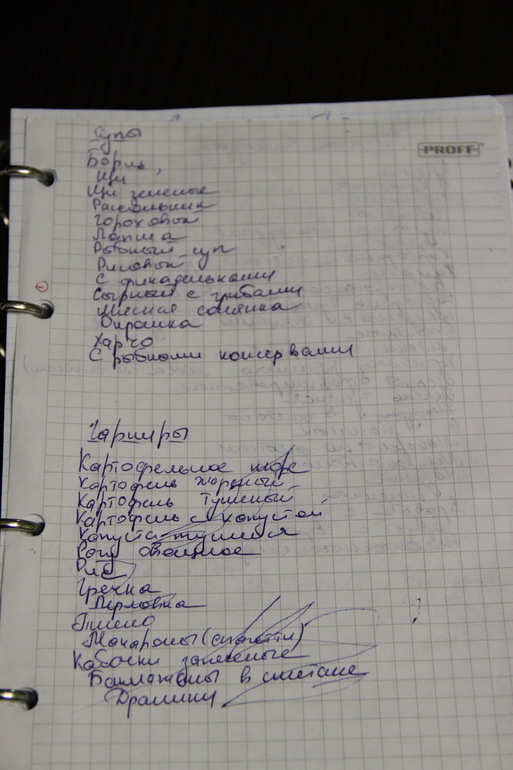 Супы
PROFF
Борщ
Щи
Щи зеленые
Рассольник
Гороховый
Лапша
Рыбный суп
Рисовый
С фрикадельками
Сырный с грибами
Мясная солянка
Окрошка
Харчо
С рыбными консервами
Гарниры
Картофельное пюре
Картофель жареный
Картофель тушеный
Картофель с капустой
Капуста тушеная
Рагу овощное
Рис
Гречка
Перловка
Пшено
Макароны (спагетти)
Кабачки запеченые
Баклажаны в сметане
Драники